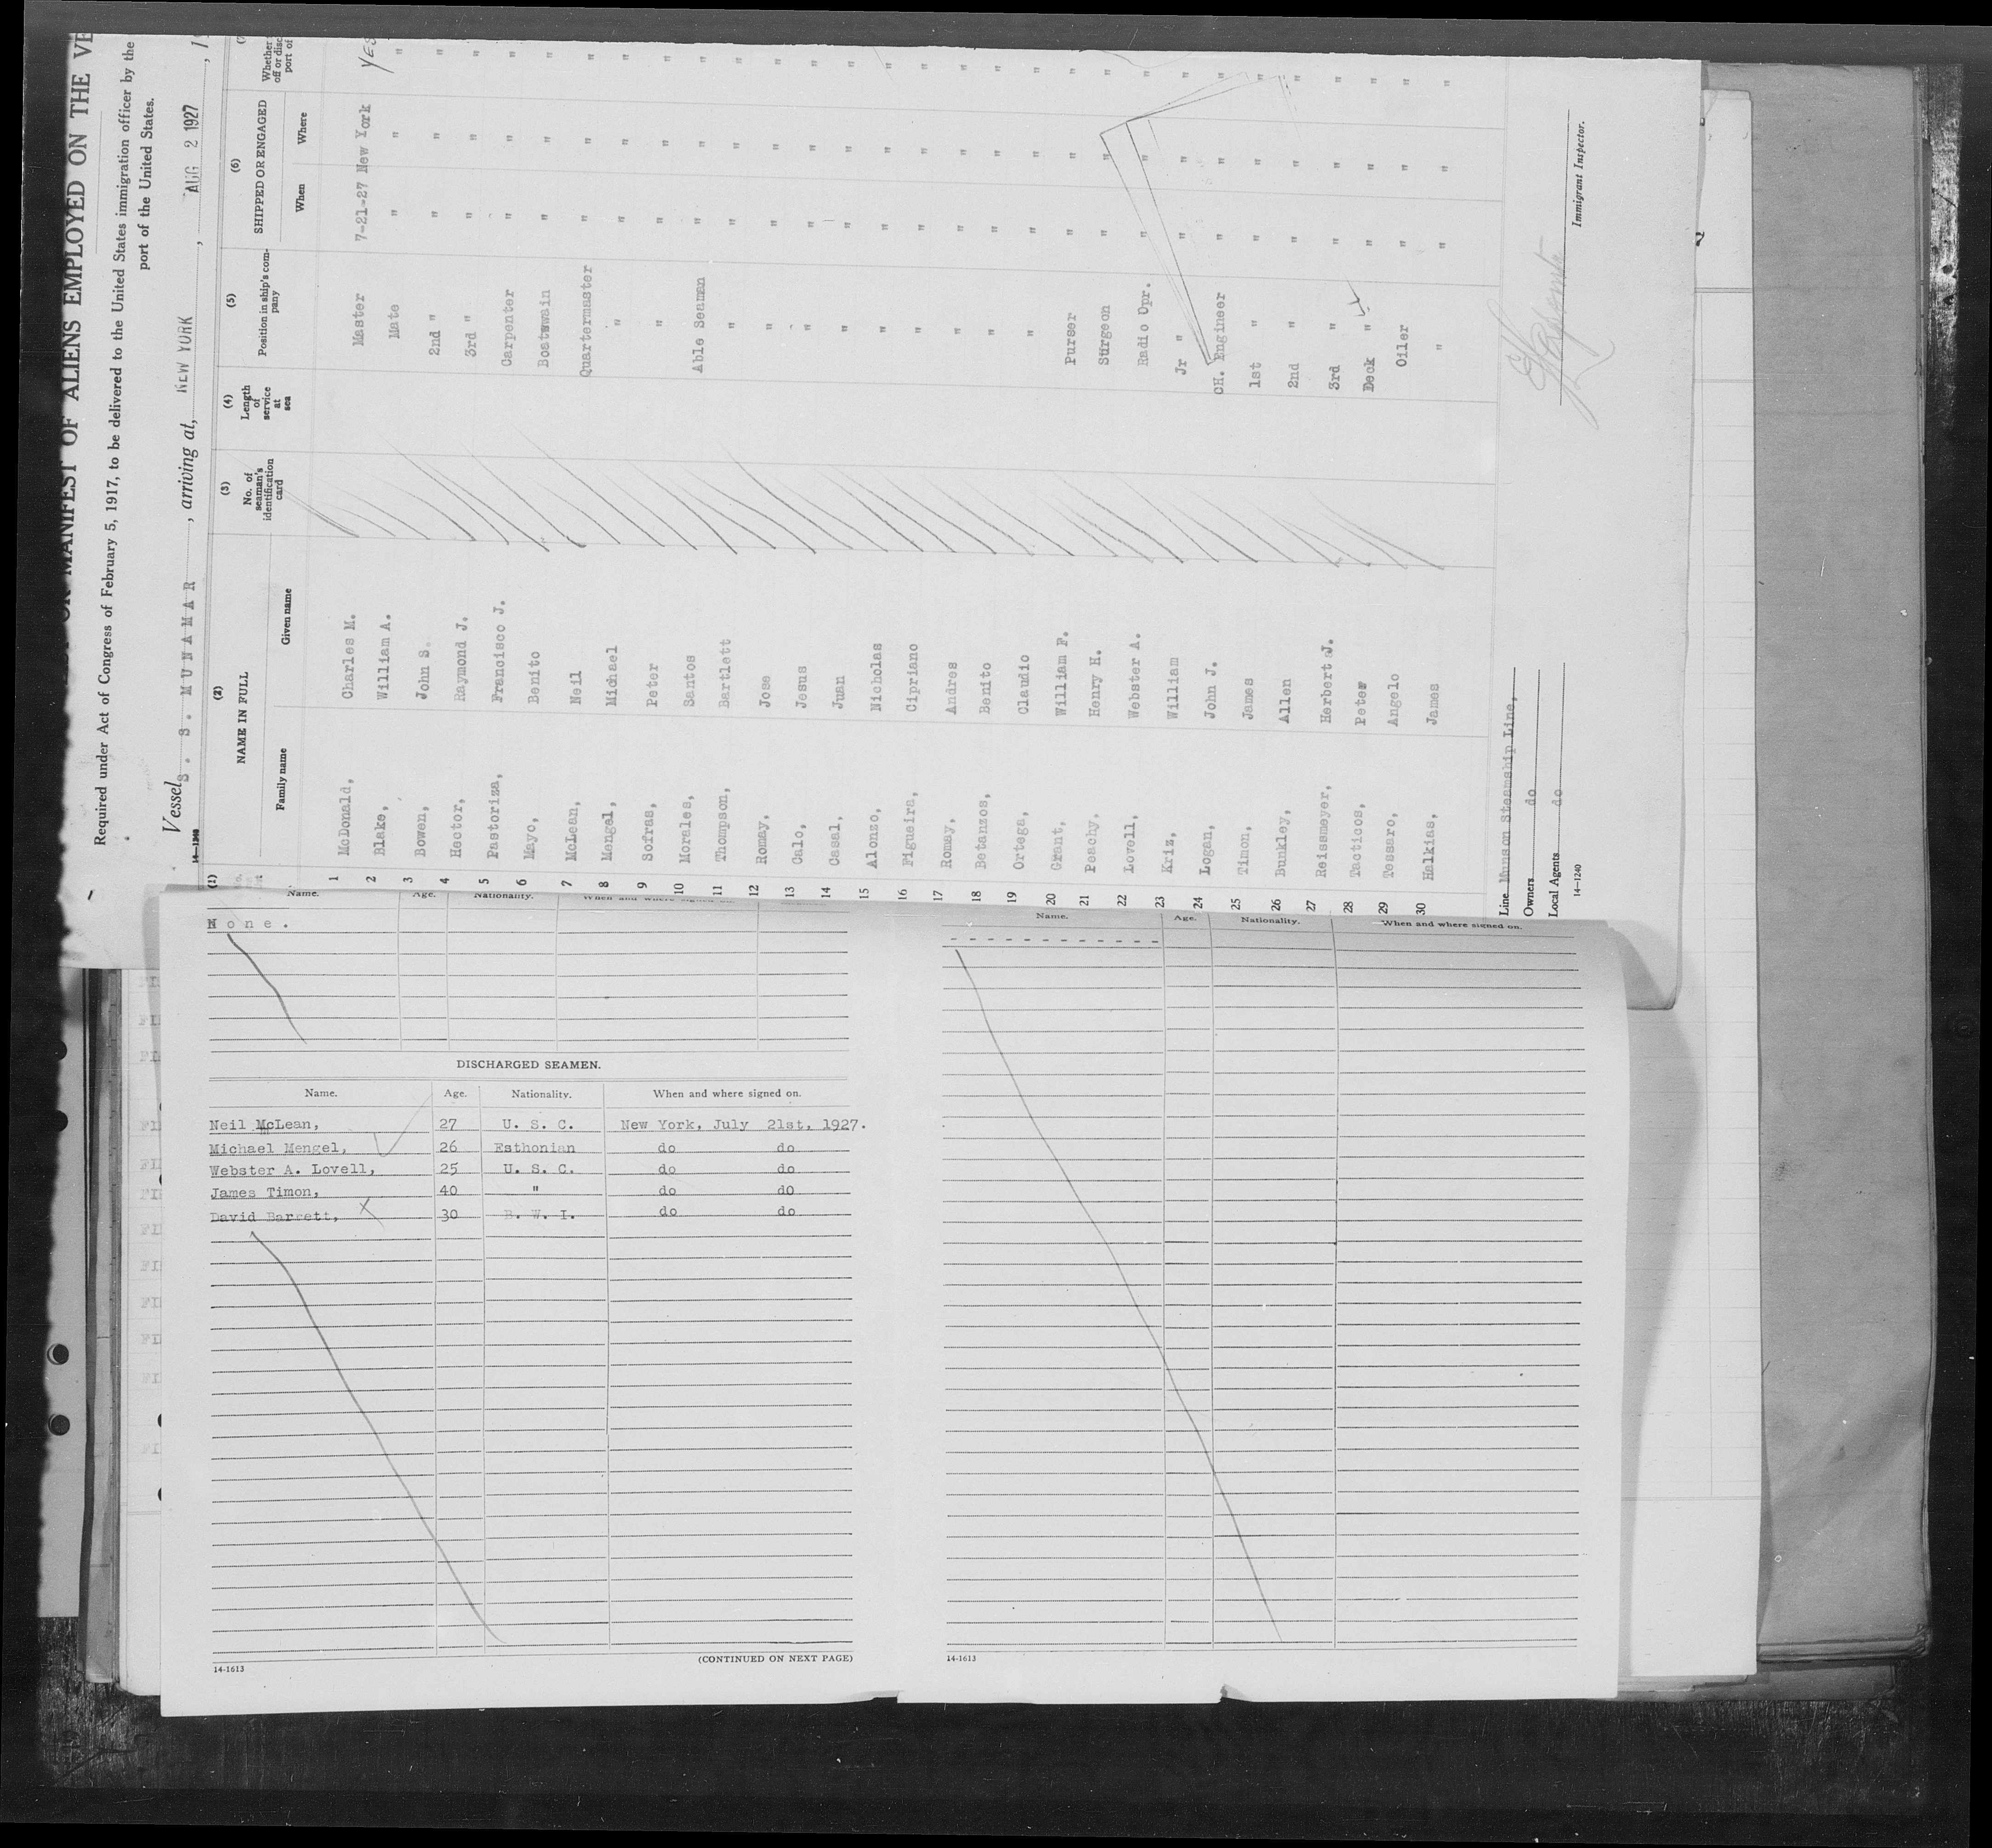 MANIFEST OF ALIENS EMPLOYED ON THE
Required under Act of Congress of February 5, 1917, to be delivered to the United States immigration officer by the
port of the United States.
Vessel S. S. MUNAMAR, arriving at, NEW YORK, AUG 2 1927
14—1240
(1) (2) (3) (4) (5) (6)
NAME IN FULL No. of seaman's identification card Length of service at sea Position in ship's company SHIPPED OR ENGAGED Whether
off or
port of
Family name Given name When Where
1 McDonald, Charles M. Master 7-21-27 New York Yes
2 Blake, William A. Mate " " "
3 Bowen, John S. 2nd " " " "
4 Hector, Raymond J. 3rd " " " "
5 Pastoriza, Francisco J. Carpenter " " "
6 Mayo, Benito Boatswain " " "
7 McLean, Neil Quartermaster " " "
8 Mengel, Michael " " " "
9 Sofras, Peter " " " "
10 Morales, Santos Able Seaman " " "
11 Thompson, Bartlett " " " "
12 Romay, Jose " " " "
13 Calo, Jesus " " " "
14 Casal, Juan " " " "
15 Alonzo, Nicholas " " " "
16 Figueira, Cipriano " " " "
17 Romay, Andres " " " "
18 Betanzos, Benito " " " "
19 Ortega, Claudio " " " "
20 Grant, William F. Purser " " "
21 Peachy, Henry H. Surgeon " " "
22 Lovell, Webster A. Radio Opr. " " "
23 Kriz, William Jr " " " "
24 Logan, John J. CH. Engineer " " "
25 Timon, James 1st " " " "
26 Bunkley, Allen 2nd " " " "
27 Reissmeyer, Herbert J. 3rd " " " "
28 Tacticos, Peter Deck " " " "
29 Tessaro, Angelo Oiler " " "
30 Halkias, James " " " "
Line Munson Steamship Line,
Owners do
Local Agents do
Immigrant Inspector.
14—1240
Name. Age. Nationality. When and where signed on.
None.
DISCHARGED SEAMEN.
Name. Age. Nationality. When and where signed on.
Neil McLean, 27 U. S. C. New York, July 21st, 1927.
Michael Mengel, 26 Esthonian do do
Webster A. Lovell, 25 U. S. C. do do
James Timon, 40 " do dO
David Barrett, 30 B. W. I. do do
14-1613 (CONTINUED ON NEXT PAGE)
Name. Age. Nationality. When and where signed on.
- - - - - - - - - - - -
14-1613